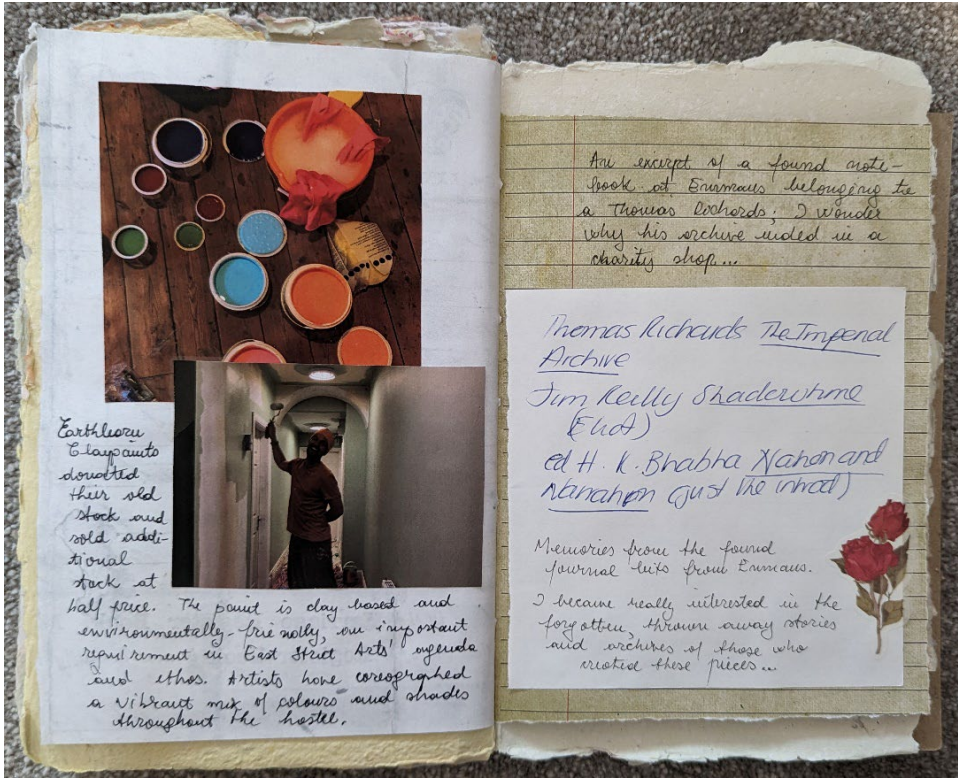 Earthborn
Claypaints
donated
their old
stock and
sold addi-
tional
stock at
half price. The paint is clay based and
environmentally-friendly, an important
requirement in East Street Arts' agenda
and ethos. Artists have coreographed
a vibrant mix of colours and shades
throughout the hostel.
An excerpt of a found note-
book at Emmaus belonging to
a Thomas Richards; I wonder
why his archive ended in a
charity shop...
Thomas Richards The Imperial
Archive
Jim Reilly Shadowtime
(Eliot)
ed H. K. Bhabha Nation and
Narration (just the introd)
Memories from the found
journal bits from Emmaus.
I became really interested in the
forgotten, thrown away stories
and archives of those who
created these pieces...